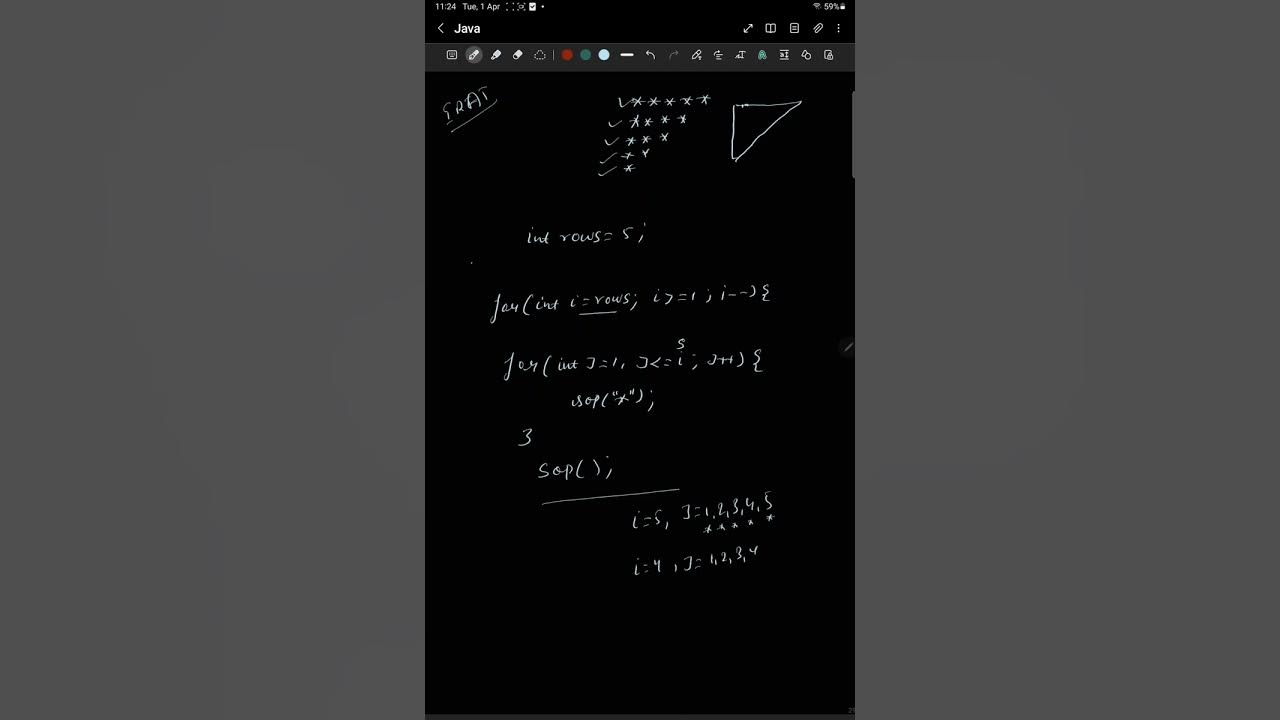 11:24 Tue, 1 Apr 59%
Java
* * * * *
* * * *
* * *
* *
*
int rows = 5;
for(int i=rows; i>=1; i--){
5
for(int J=1, J<=i; J++){
sop("*");
}
sop();
i=5, J=1,2,3,4,5
* * * * *
i=4, J=1,2,3,4